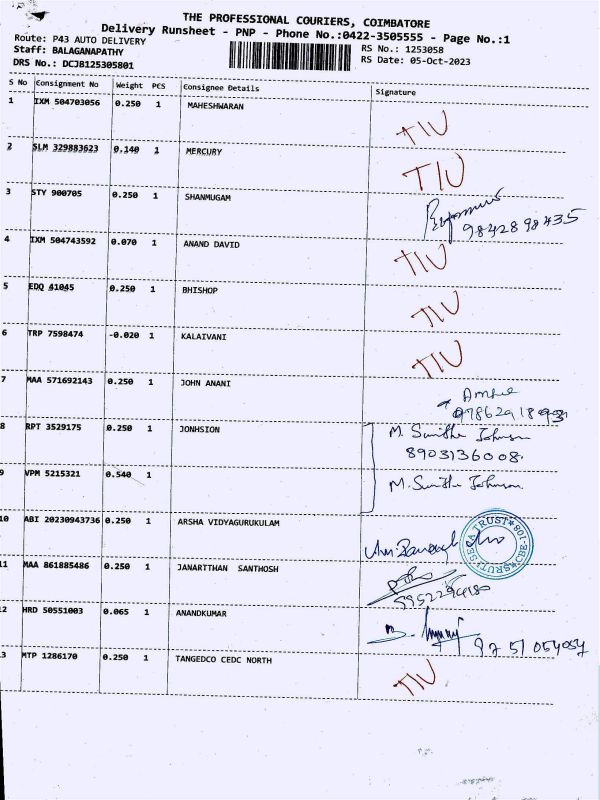 THE PROFESSIONAL COURIERS, COIMBATORE
Delivery Runsheet - PNP - Phone No.:0422-3505555 - Page No.:1
Route: P43 AUTO DELIVERY
Staff: BALAGANAPATHY
DRS No.: DCJ8125305801
RS No.: 1253058
RS Date: 05-Oct-2023
S No Consignment No Weight PCS Consignee Details Signature
1 IXM 504703056 0.250 1 MAHESHWARAN TIU
2 SLM 329883623 0.140 1 MERCURY TIU
3 STY 900705 0.250 1 SHANMUGAM
9842898435
4 IXM 504743592 0.070 1 ANAND DAVID TIU
5 EDQ 41045 0.250 1 BHISHOP TIU
6 TRP 7598474 -0.020 1 KALAIVANI TIU
7 MAA 571692143 0.250 1 JOHN ANANI
8 RPT 3529175 0.250 1 JONHSION M. Sunitha Johnson
8903136008.
9 VPM 5215321 0.540 1 M. Sunitha Johnson.
10 ABI 20230943736 0.250 1 ARSHA VIDYAGURUKULAM
SRUTI SEVA TRUST * CBE-108 *
11 MAA 861885486 0.250 1 JANARTTHAN SANTHOSH
12 HRD 50551003 0.065 1 ANANDKUMAR
9751054054
13 MTP 1286170 0.250 1 TANGEDCO CEDC NORTH TIU